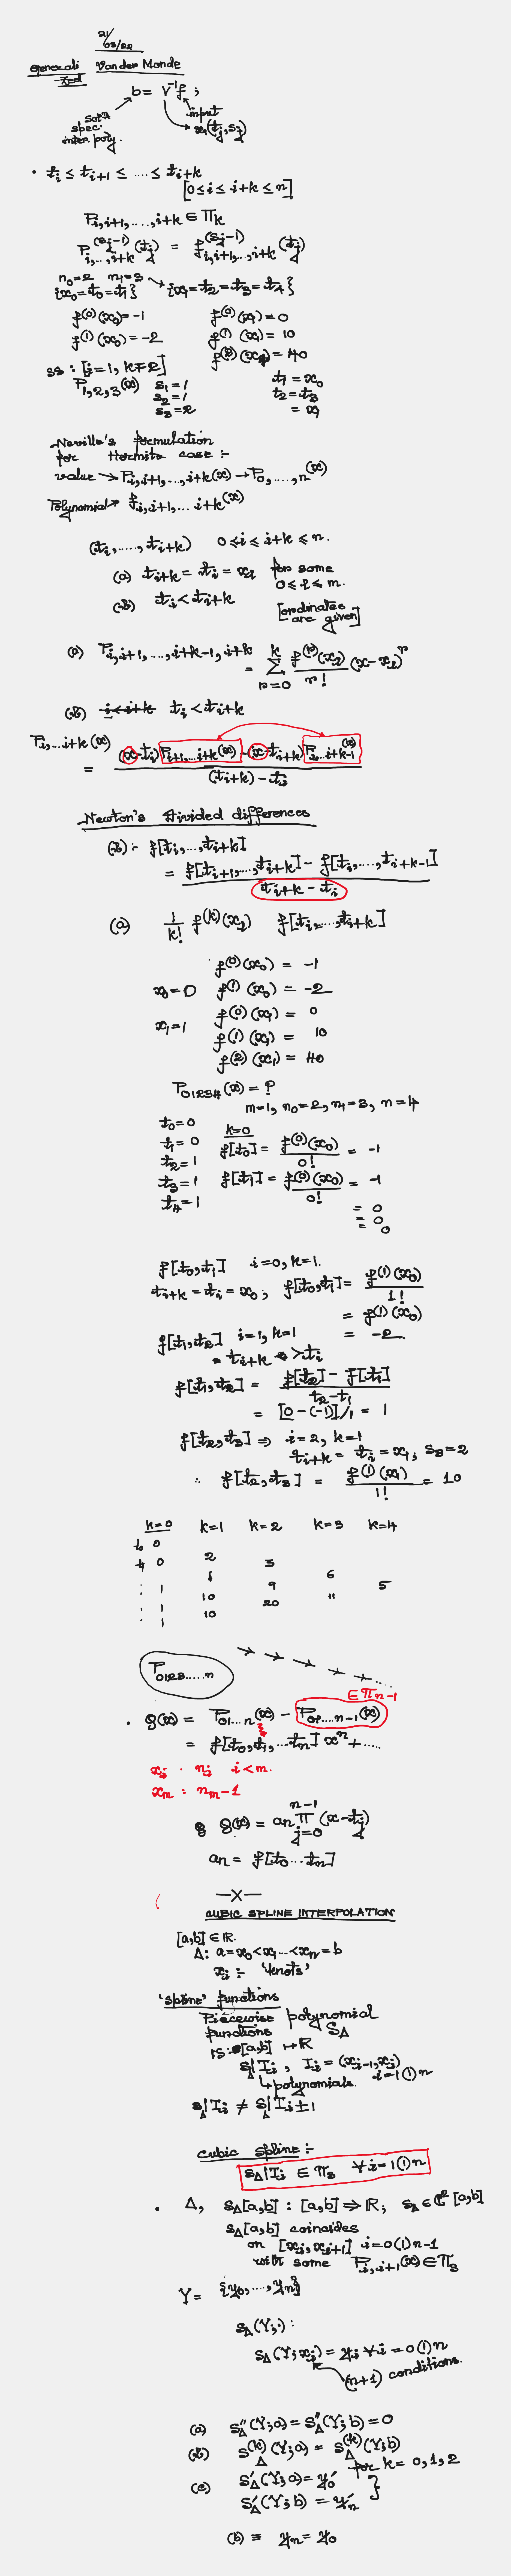 21/03/22
Generali-zed Vander Monde
b = V⁻¹f ;
solⁿ spec. inter poly.
input
x(t_j, s_j)
• t_i ≤ t_{i+1} ≤ .... ≤ t_{i+k}
[0 ≤ i ≤ i+k ≤ n]
P_{i,i+1,....,i+k} ∈ Π_k
P^{(s_j-1)}_{i,...,i+k}(t_j) = f^{(s_j-1)}_{i,i+1,...,i+k}(t_j)
n_0=2 n_1=3
{x_0=t_0=t_1} {x_1=t_2=t_3=t_4}
f^{(0)}(x_0) = -1 f^{(0)}(x_1) = 0
f^{(1)}(x_0) = -2 f^{(1)}(x_1) = 10
f^{(2)}(x_1) = 40
[i=1, k=2]
P_{1,2,3}(x) s_1=1 t_1 = x_0
s_2=1 t_2=t_3
s_3=2 = x_1
Neville's formulation
for Hermite case :-
value → P_{i,i+1,...,i+k}(x) → P_{0,....,n}(x)
Polynomial → f_{i,i+1,...,i+k}(x)
(t_i,....,t_{i+k}) 0 ≤ i ≤ i+k ≤ n.
(a) t_{i+k} = t_i = x_l for some
0 ≤ l ≤ m.
(b) t_i < t_{i+k}
[ordinates are given]
(a) P_{i,i+1,...,i+k-1,i+k}
= Σ_{r=0}^{k} f^{(r)}(x_l)/r! (x-x_l)^r
(b) i<i+k t_i < t_{i+k}
P_{i,...i+k}(x)
= ((x-t_i)P_{i+1,...i+k}(x) - (x-t_{i+k})P_{i...i+k-1}(x)) / ((t_{i+k}) - t_i)
Newton's divided differences
(b) :- f[t_i,...,t_{i+k}]
= (f[t_{i+1},...,t_{i+k}] - f[t_i,...,t_{i+k-1}]) / (t_{i+k} - t_i)
(a) 1/k! f^{(k)}(x_l) f[t_i,...,t_{i+k}]
f^{(0)}(x_0) = -1
x_0=0 f^{(1)}(x_0) = -2
f^{(0)}(x_1) = 0
x_1=1 f^{(1)}(x_1) = 10
f^{(2)}(x_1) = 40
P_{01234}(x) = ?
m=1, n_0=2, n_1=3, n=4
t_0=0 k=0
t_1=0 f[t_0] = f^{(0)}(x_0)/0! = -1
t_2=1
t_3=1 f[t_1] = f^{(0)}(x_0)/0! = -1
t_4=1
= 0
= 0
= 0
f[t_0,t_1] i=0, k=1.
t_{i+k} = t_i = x_0; f[t_0,t_1] = f^{(1)}(x_0)/1!
= f^{(1)}(x_0)
= -2.
f[t_1,t_2] i=1, k=1
t_{i+k} > t_i
f[t_1,t_2] = (f[t_2] - f[t_1])/(t_2-t_1)
= [0-(-1)]/1 = 1
f[t_2,t_3] ⇒ i=2, k=1
t_{i+k} = t_i = x_1; s_3=2
∴ f[t_2,t_3] = f^{(1)}(x_1)/1! = 10
k=0 k=1 k=2 k=3 k=4
t_0 0
2
t_1 0 3
1 6
1 9 5
10 11
1 20
10
1
P_{0123.....n}
∈ Π_{n-1}
• Q(x) = P_{01...n}(x) - P_{01....n-1}(x)
= f[t_0,t_1,...t_n] x^n + ....
x_i : n_i i<m.
x_m : n_m-1
Q(x) = a_n Π_{j=0}^{n-1} (x-t_j)
a_n = f[t_0...t_n]
—X—
CUBIC SPLINE INTERPOLATION
[a,b] ∈ ℝ.
Δ: a=x_0<x_1...<x_n=b
x_i :- 'knots'
'spline' functions
Piecewise polynomial
functions S_Δ
S: [a,b] ↦ ℝ
S_Δ|I_i , I_i = (x_{i-1},x_i)
↳ polynomials. i=1(1)n
S_Δ|I_i ≠ S_Δ|I_{i±1}
Cubic spline :-
S_Δ|I_i ∈ Π_3 ∀ i=1(1)n
• Δ, S_Δ[a,b] : [a,b] ⇒ ℝ; S_Δ ∈ C²[a,b]
S_Δ[a,b] coincides
on [x_i,x_{i+1}] i=0(1)n-1
with some P_{i,i+1}(x) ∈ Π_3
Y = {y_0,...,y_n}
S_Δ(Y;·) :
S_Δ(Y;x_i) = y_i ∀ i=0(1)n
(n+1) conditions.
(a) S''_Δ(Y;a) = S''_Δ(Y;b) = 0
(b) S^{(k)}_Δ(Y;a) = S^{(k)}_Δ(Y;b)
for k = 0,1,2
(c) S'_Δ(Y;a) = y'_0
S'_Δ(Y;b) = y'_n
(b) ≡ y_n = y_0